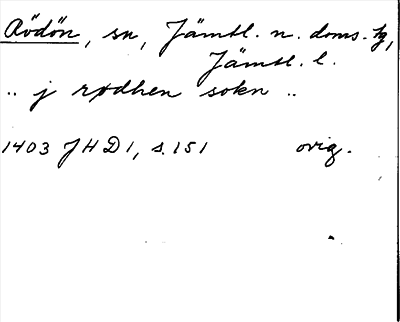 Rödön, sn, Jämtl. n. doms. tg,
Jämtl. l.
.. j rødhen sokn ..
1403 JHD 1, s. 151 orig.